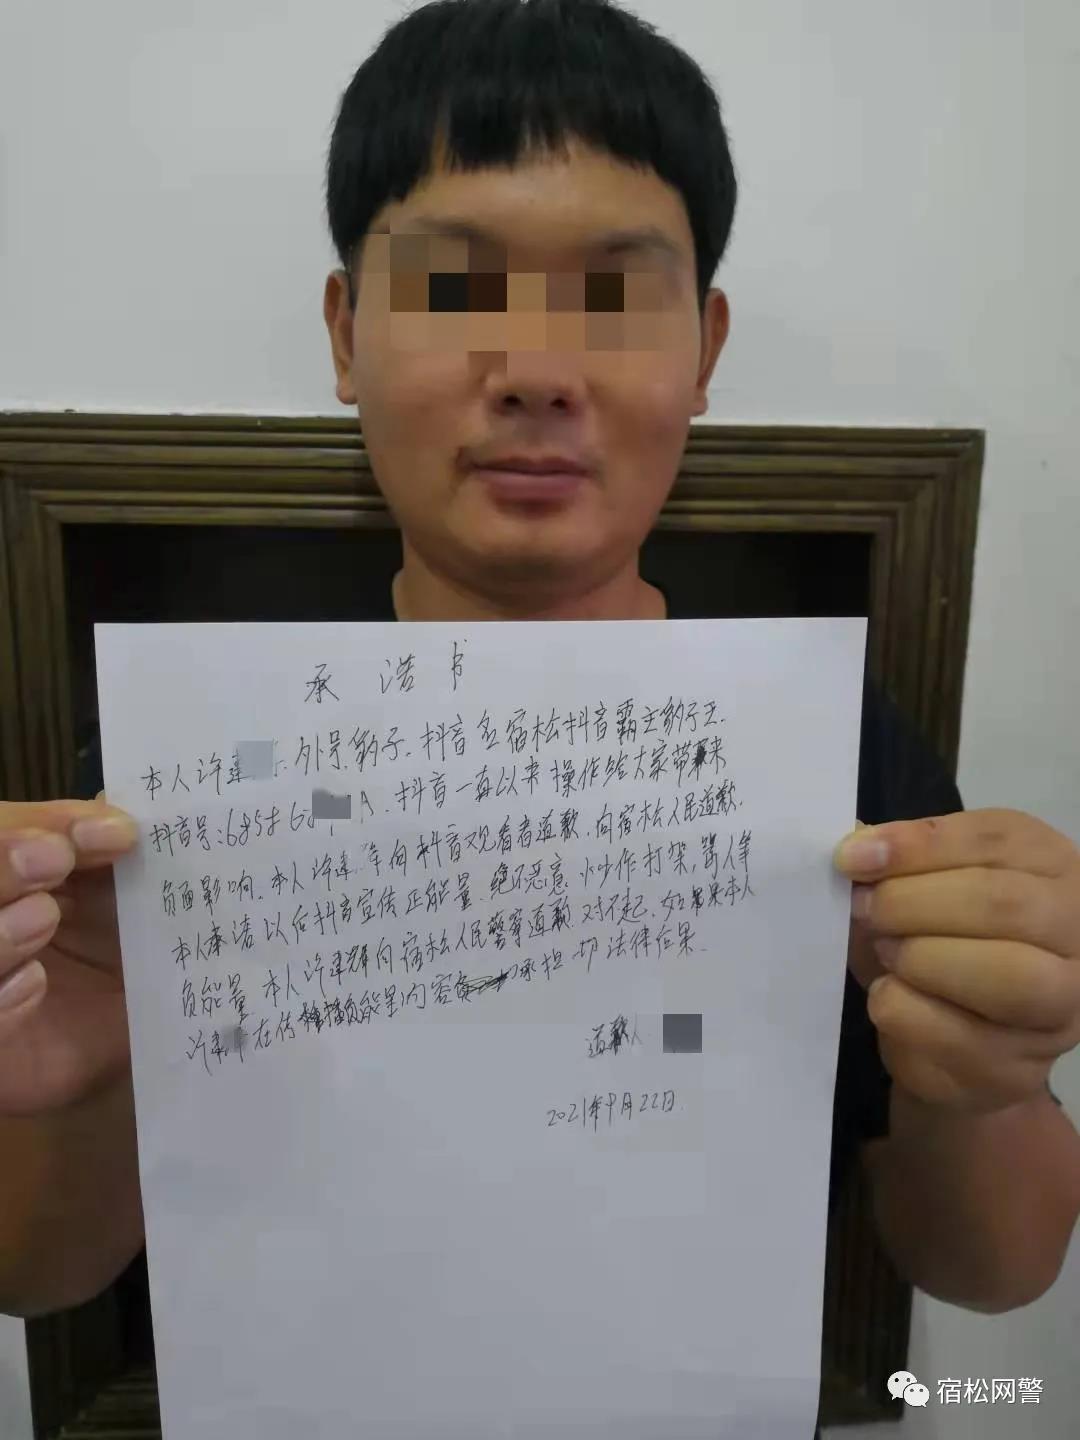 承诺书
本人许建 . 外号豹子. 抖音名宿松抖音霸主豹子王.
抖音号: A. 抖音一直以来操作给大家带来
负面影响. 本人许建 向抖音观看者道歉. 向宿松人民道歉.
本人承诺以后抖音宣传正能量. 绝不恶意炒作打架,骂人等
负能量. 本人许建辉向宿松人民警察道歉. 对不起. 如果本人
许建 在传播负能量内容 承担一切法律后果.
道歉人
2021年9月22日.
宿松网警